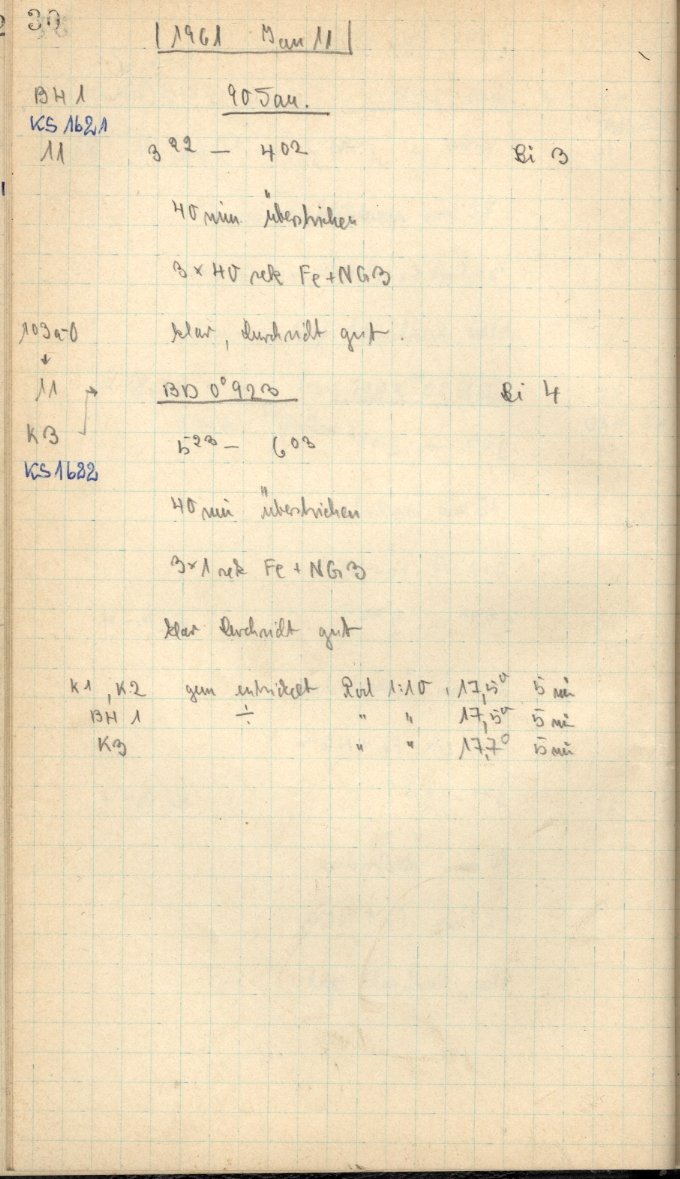 30
1961 Jan 11
BH 1
90 Tau.
KS 1621
11 3 22 — 4 02 Bi 3
40 min überstrichen
3 × 40 sek Fe + NG3
103a-O klar, Durchsicht gut.
↓
11 → BD 0° 923 Bi 4
K3
5 23 — 6 03
KS 1622
40 min überstrichen
3 × 1 sek Fe + NG3
klar Durchsicht gut
K1, K2 gem entwickelt Rod 1:10, 17,5° 5 min
BH 1 ÷ " " 17,5° 5 min
K3 " " 17,7° 5 min